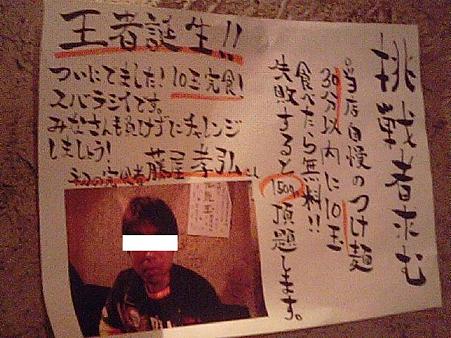 挑戦者求む
当店自慢のつけ麺
30分以内に10玉
食べたら無料!!
失敗すると1500円頂題します。
王者誕生!!
ついにでました!10玉完食!
スバラシイです。
みなさんも負けずにチャレンジ
しましょう!
藤屋孝弘さん